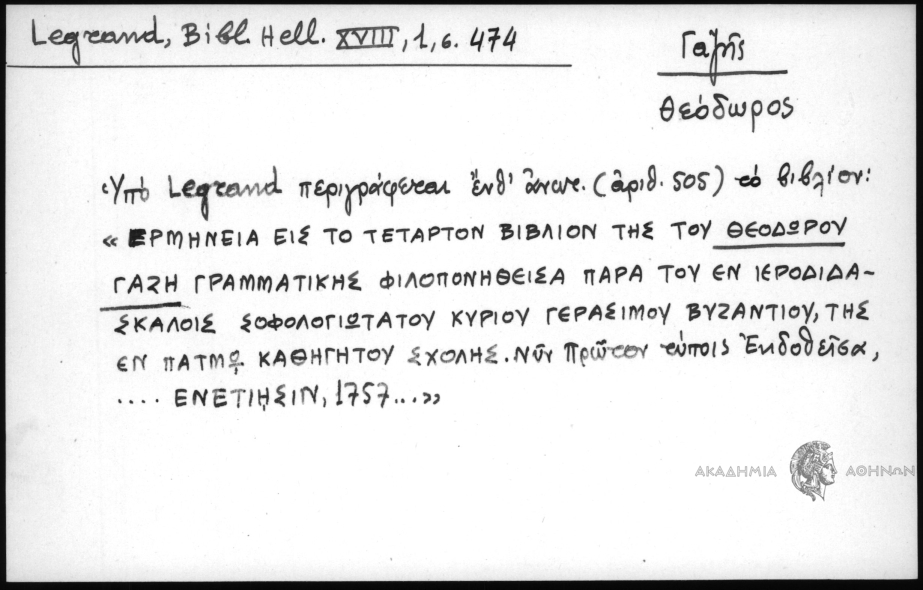 Legrand, Bibl. Hell. XVIII, 1, σ. 474
Γαζῆς
Θεόδωρος
Ὑπὸ Legrand περιγράφεται ἔνθ' ἄνωτ. (ἀριθ. 505) τὸ βιβλίον:
« ΕΡΜΗΝΕΙΑ ΕΙΣ ΤΟ ΤΕΤΑΡΤΟΝ ΒΙΒΛΙΟΝ ΤΗΣ ΤΟΥ ΘΕΟΔΩΡΟΥ
ΓΑΖΗ ΓΡΑΜΜΑΤΙΚΗΣ ΦΙΛΟΠΟΝΗΘΕΙΣΑ ΠΑΡΑ ΤΟΥ ΕΝ ΙΕΡΟΔΙΔΑ-
ΣΚΑΛΟΙΣ ΣΟΦΟΛΟΓΙΩΤΑΤΟΥ ΚΥΡΙΟΥ ΓΕΡΑΣΙΜΟΥ ΒΥΖΑΝΤΙΟΥ, ΤΗΣ
ΕΝ ΠΑΤΜῼ ΚΑΘΗΓΗΤΟΥ ΣΧΟΛΗΣ. Νῦν Πρῶτον τύποις Ἐκδοθεῖσα,
.... ΕΝΕΤΙῌΣΙΝ, 1757...»
ΑΚΑΔΗΜΙΑ ΑΘΗΝΩΝ